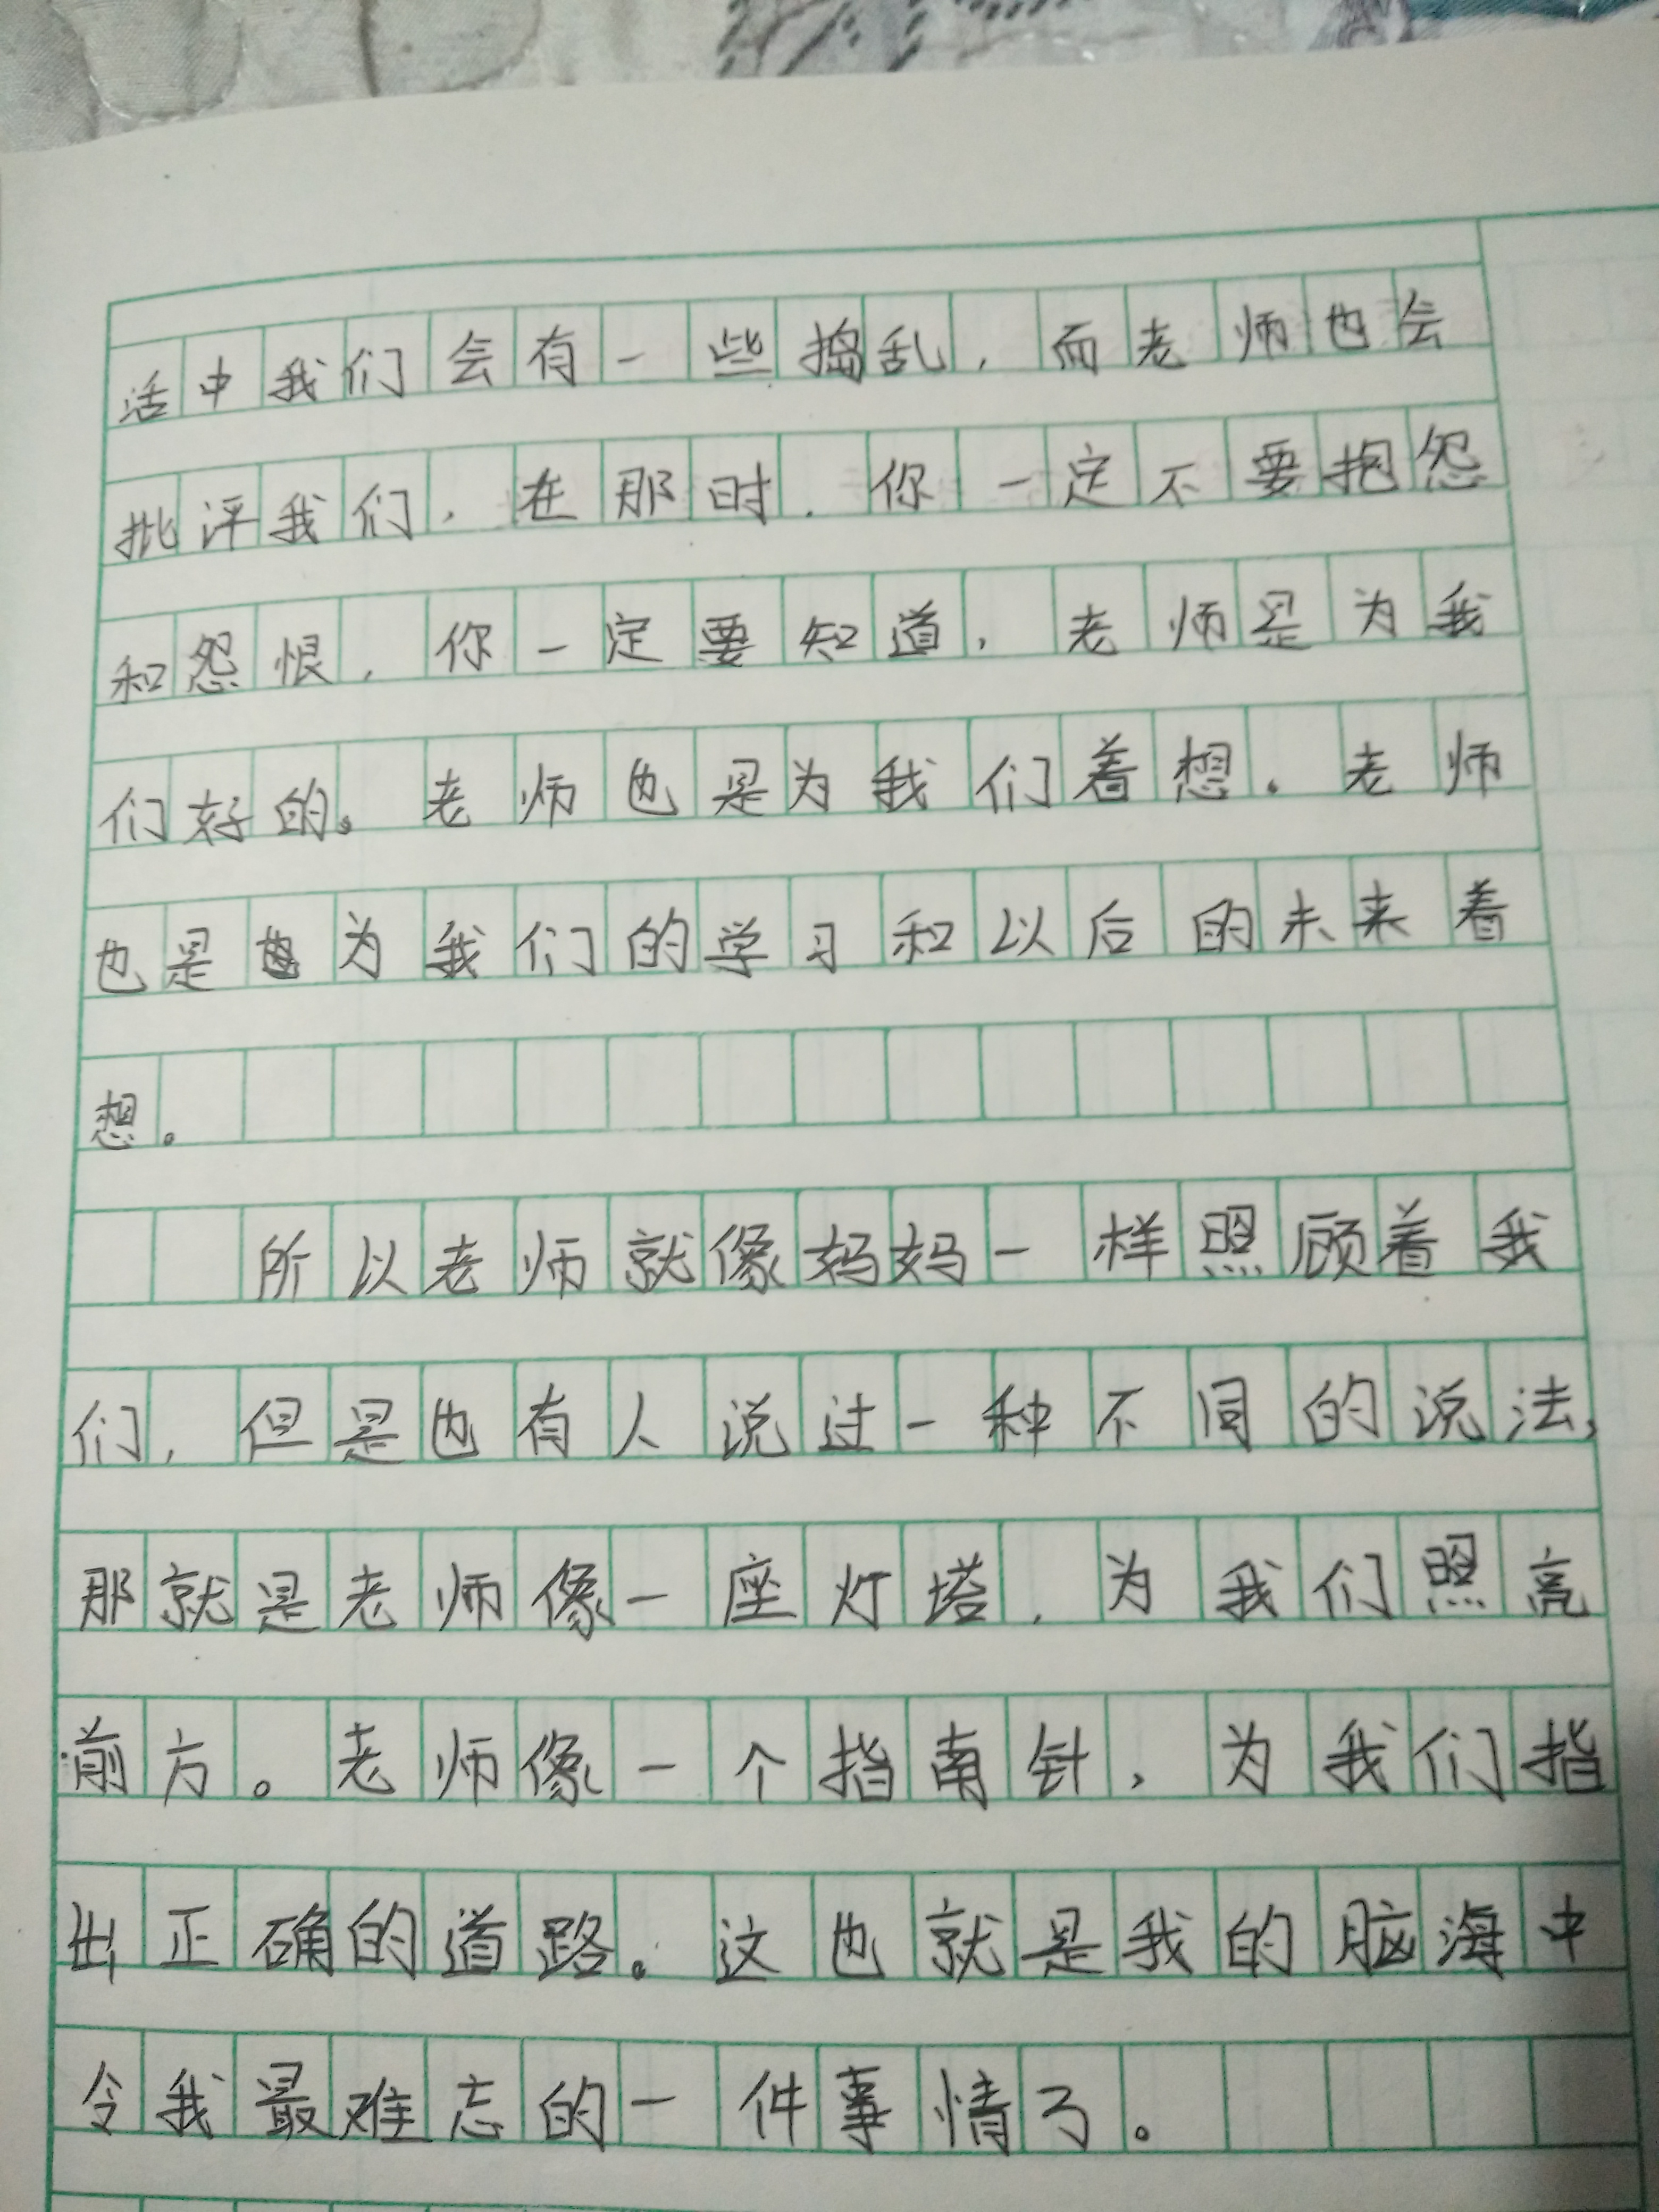 活中我们会有一些捣乱，而老师也会
批评我们，在那时，你一定不要抱怨
和怨恨，你一定要知道，老师是为我
们好的。老师也是为我们着想。老师
也是为我们的学习和以后的未来着
想。
所以老师就像妈妈一样照顾着我
们，但是也有人说过一种不同的说法，
那就是老师像一座灯塔，为我们照亮
前方。老师像一个指南针，为我们指
出正确的道路。这也就是我的脑海中
令我最难忘的一件事情了。